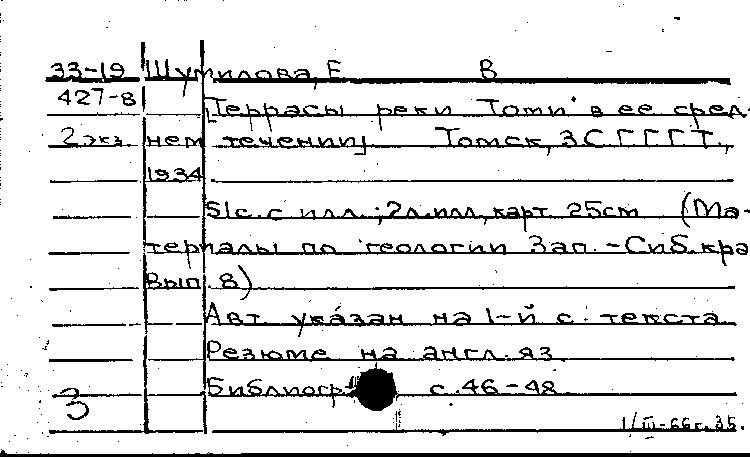 33-19 Шумилова, Е В
427-8 [Террасы реки Томи в ее сред-
2 экз. нем течении] Томск, ЗСГГГТ.,
1934.
51с. с илл.; 2л.илл., карт. 25см (Ма-
териалы по геологии Зап.-Сиб.кра
вып. 8)
Авт. указан на 1-й с. текста
Резюме на англ. яз.
Библиогр. с. 46-48
3
1/III-66г. 35.